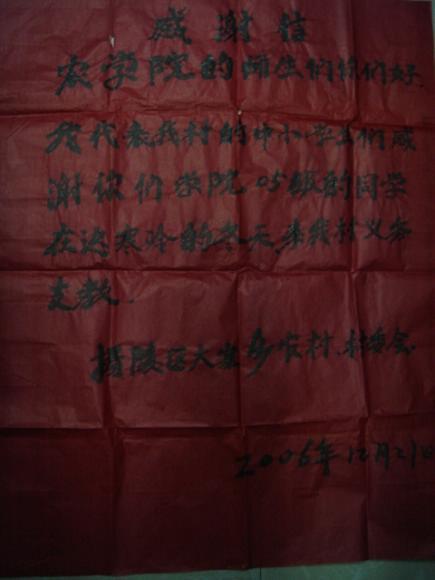 感谢信
农学院的师生们你们好.
我代表我村的中小学生们感
谢你们学院05级的同学
在这寒冷的冬天,来我村义务
支教.
杨陵区大寨乡 村、村委会.
2006年12月21日